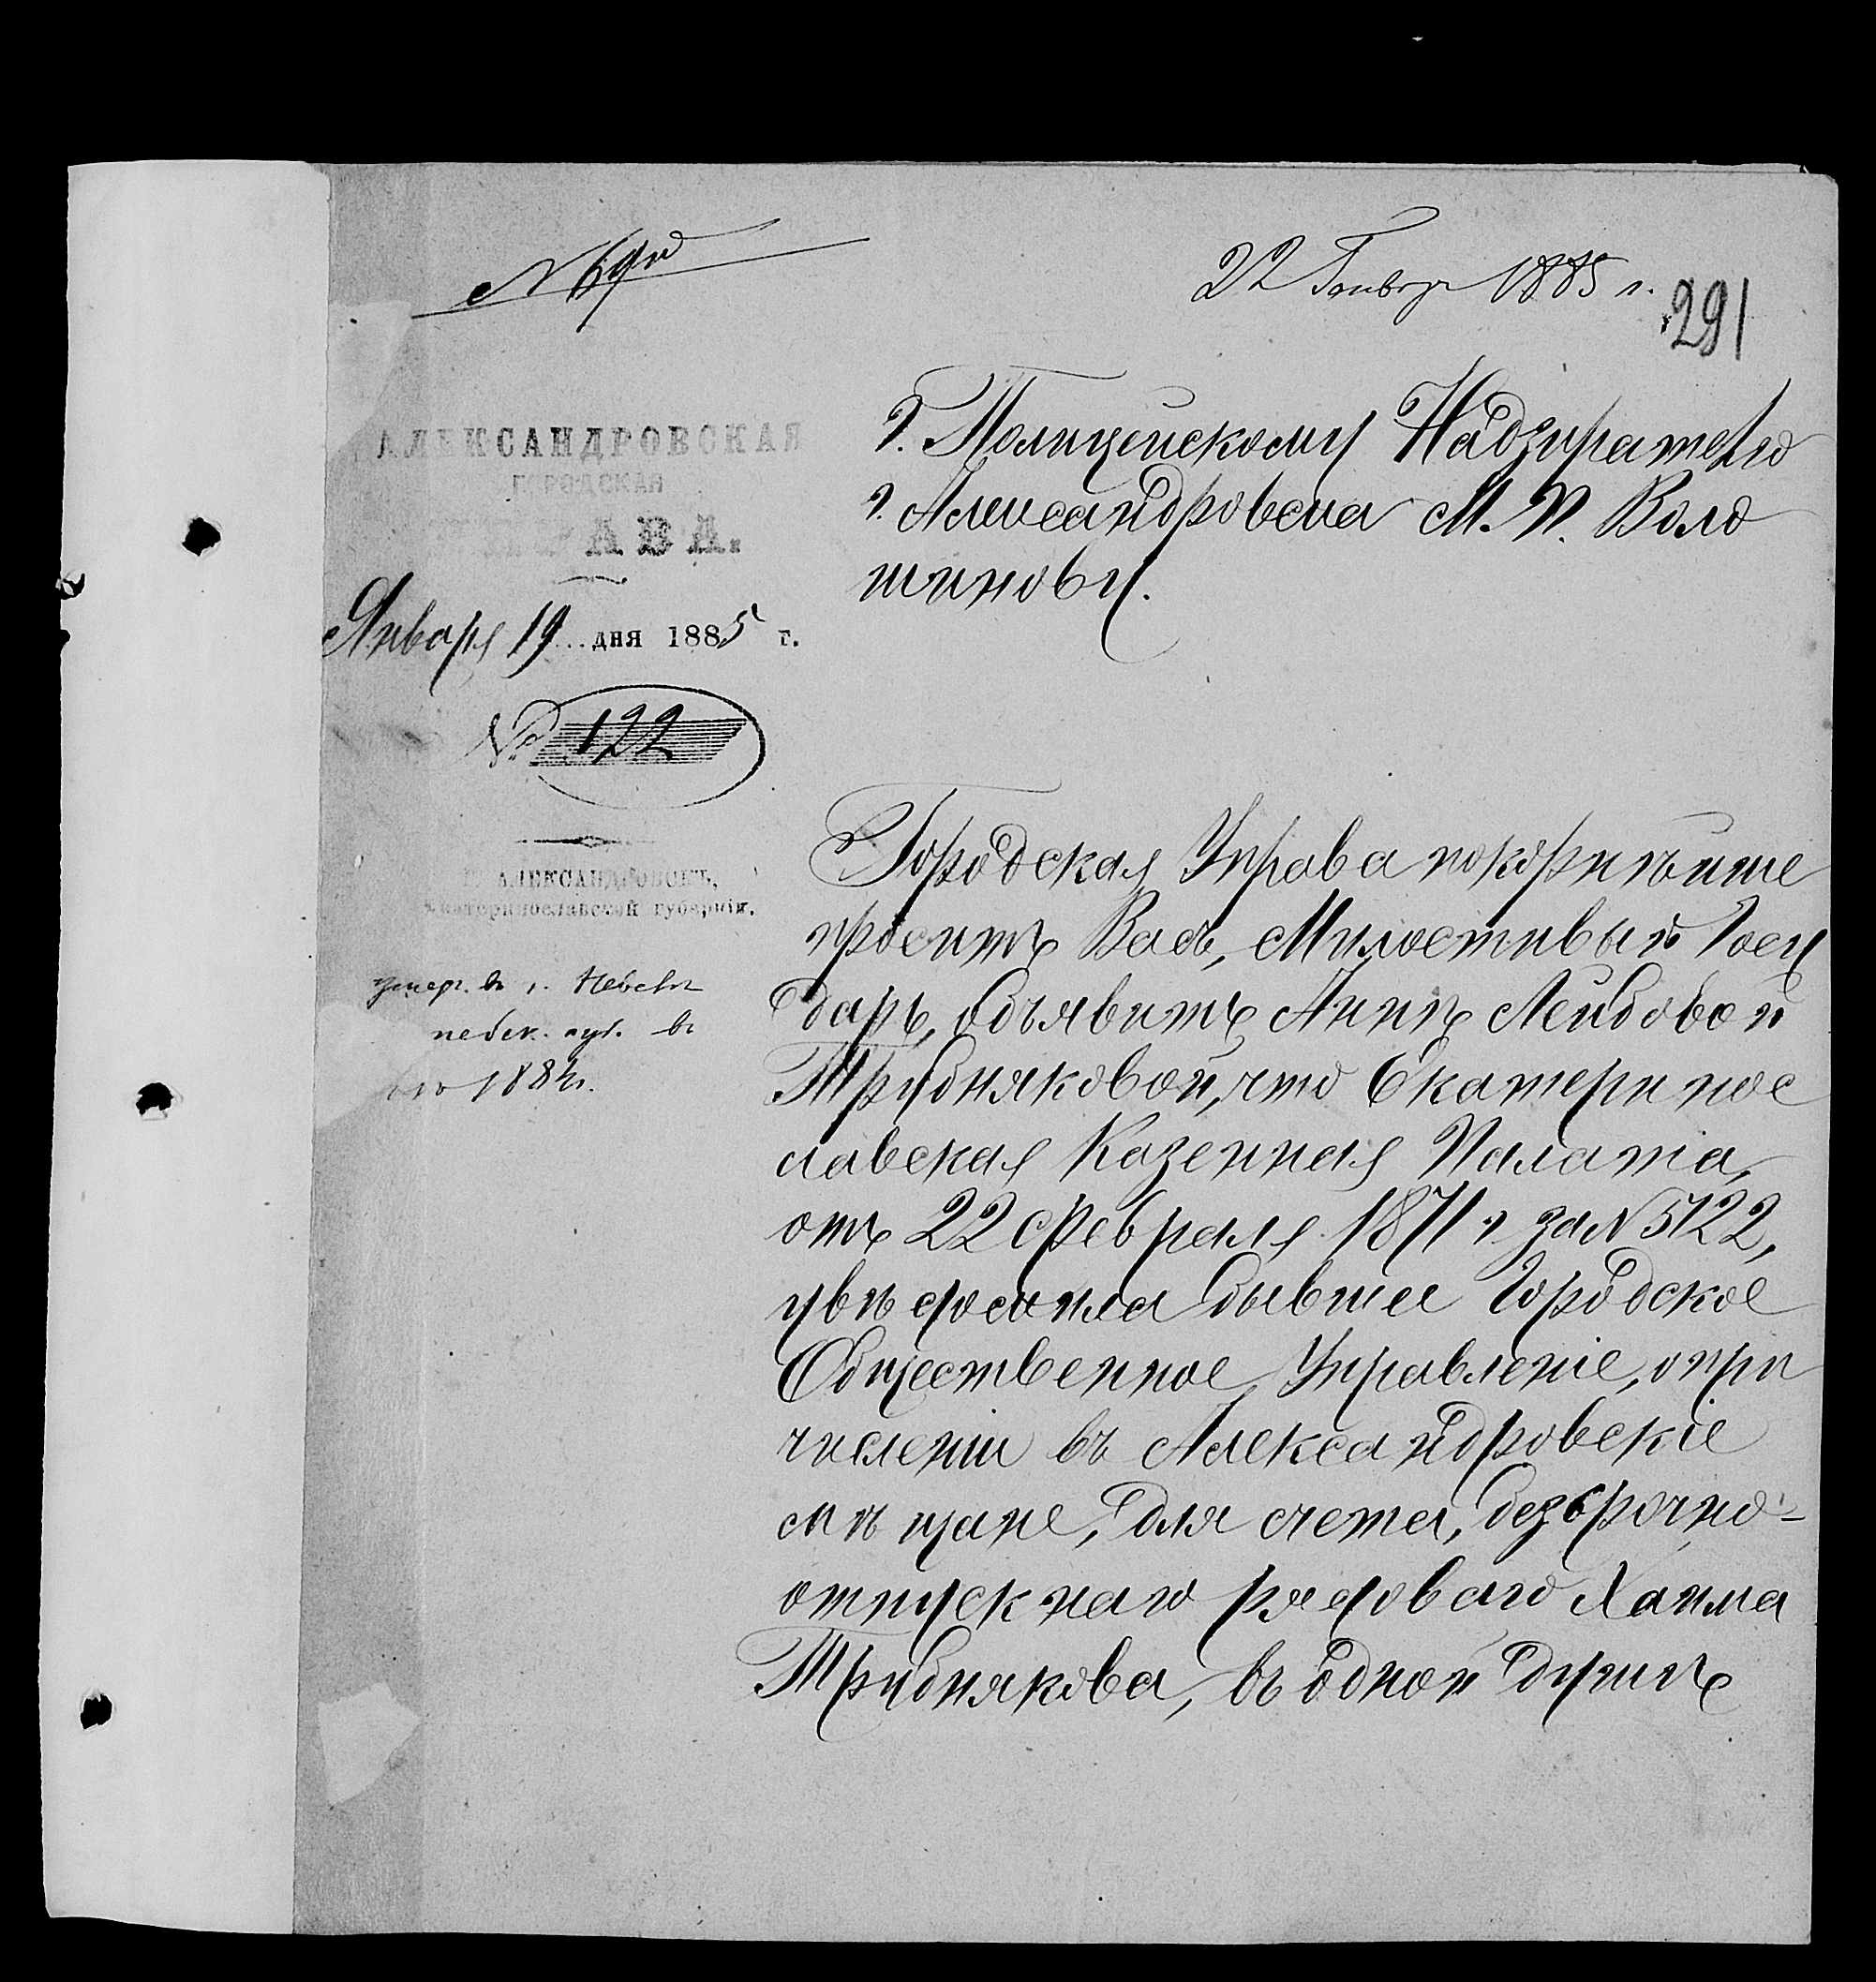 № 69
22 Января 1885 г.
291
АЛЕКСАНДРОВСКАЯ
ГОРОДСКАЯ
УПРАВА.
Января 19 дня 1885 г.
№ 122
Г. АЛЕКСАНДРОВСКЪ,
Екатеринославской губерніи.
въ г. Невель
1884 г.
Г. Полицейскому Надзирателю
г. Александровска М. П. Воло
шинову.
Городская Управа покорнѣйше
проситъ Васъ, Милостивый Госу
дарь, объявить Аннѣ Лейбовой
Трубняковой, что Екатеринос
лавская Казенная Палата,
отъ 22 Февраля 1871 г. за № 5122,
увѣдомила бывшее Городское
Общественное Управленіе, о при
численіи въ Александровскіе
мѣщане, для счета, безсрочно-
отпускнаго рядоваго Хаима
Трубнякова, въ одной душѣ